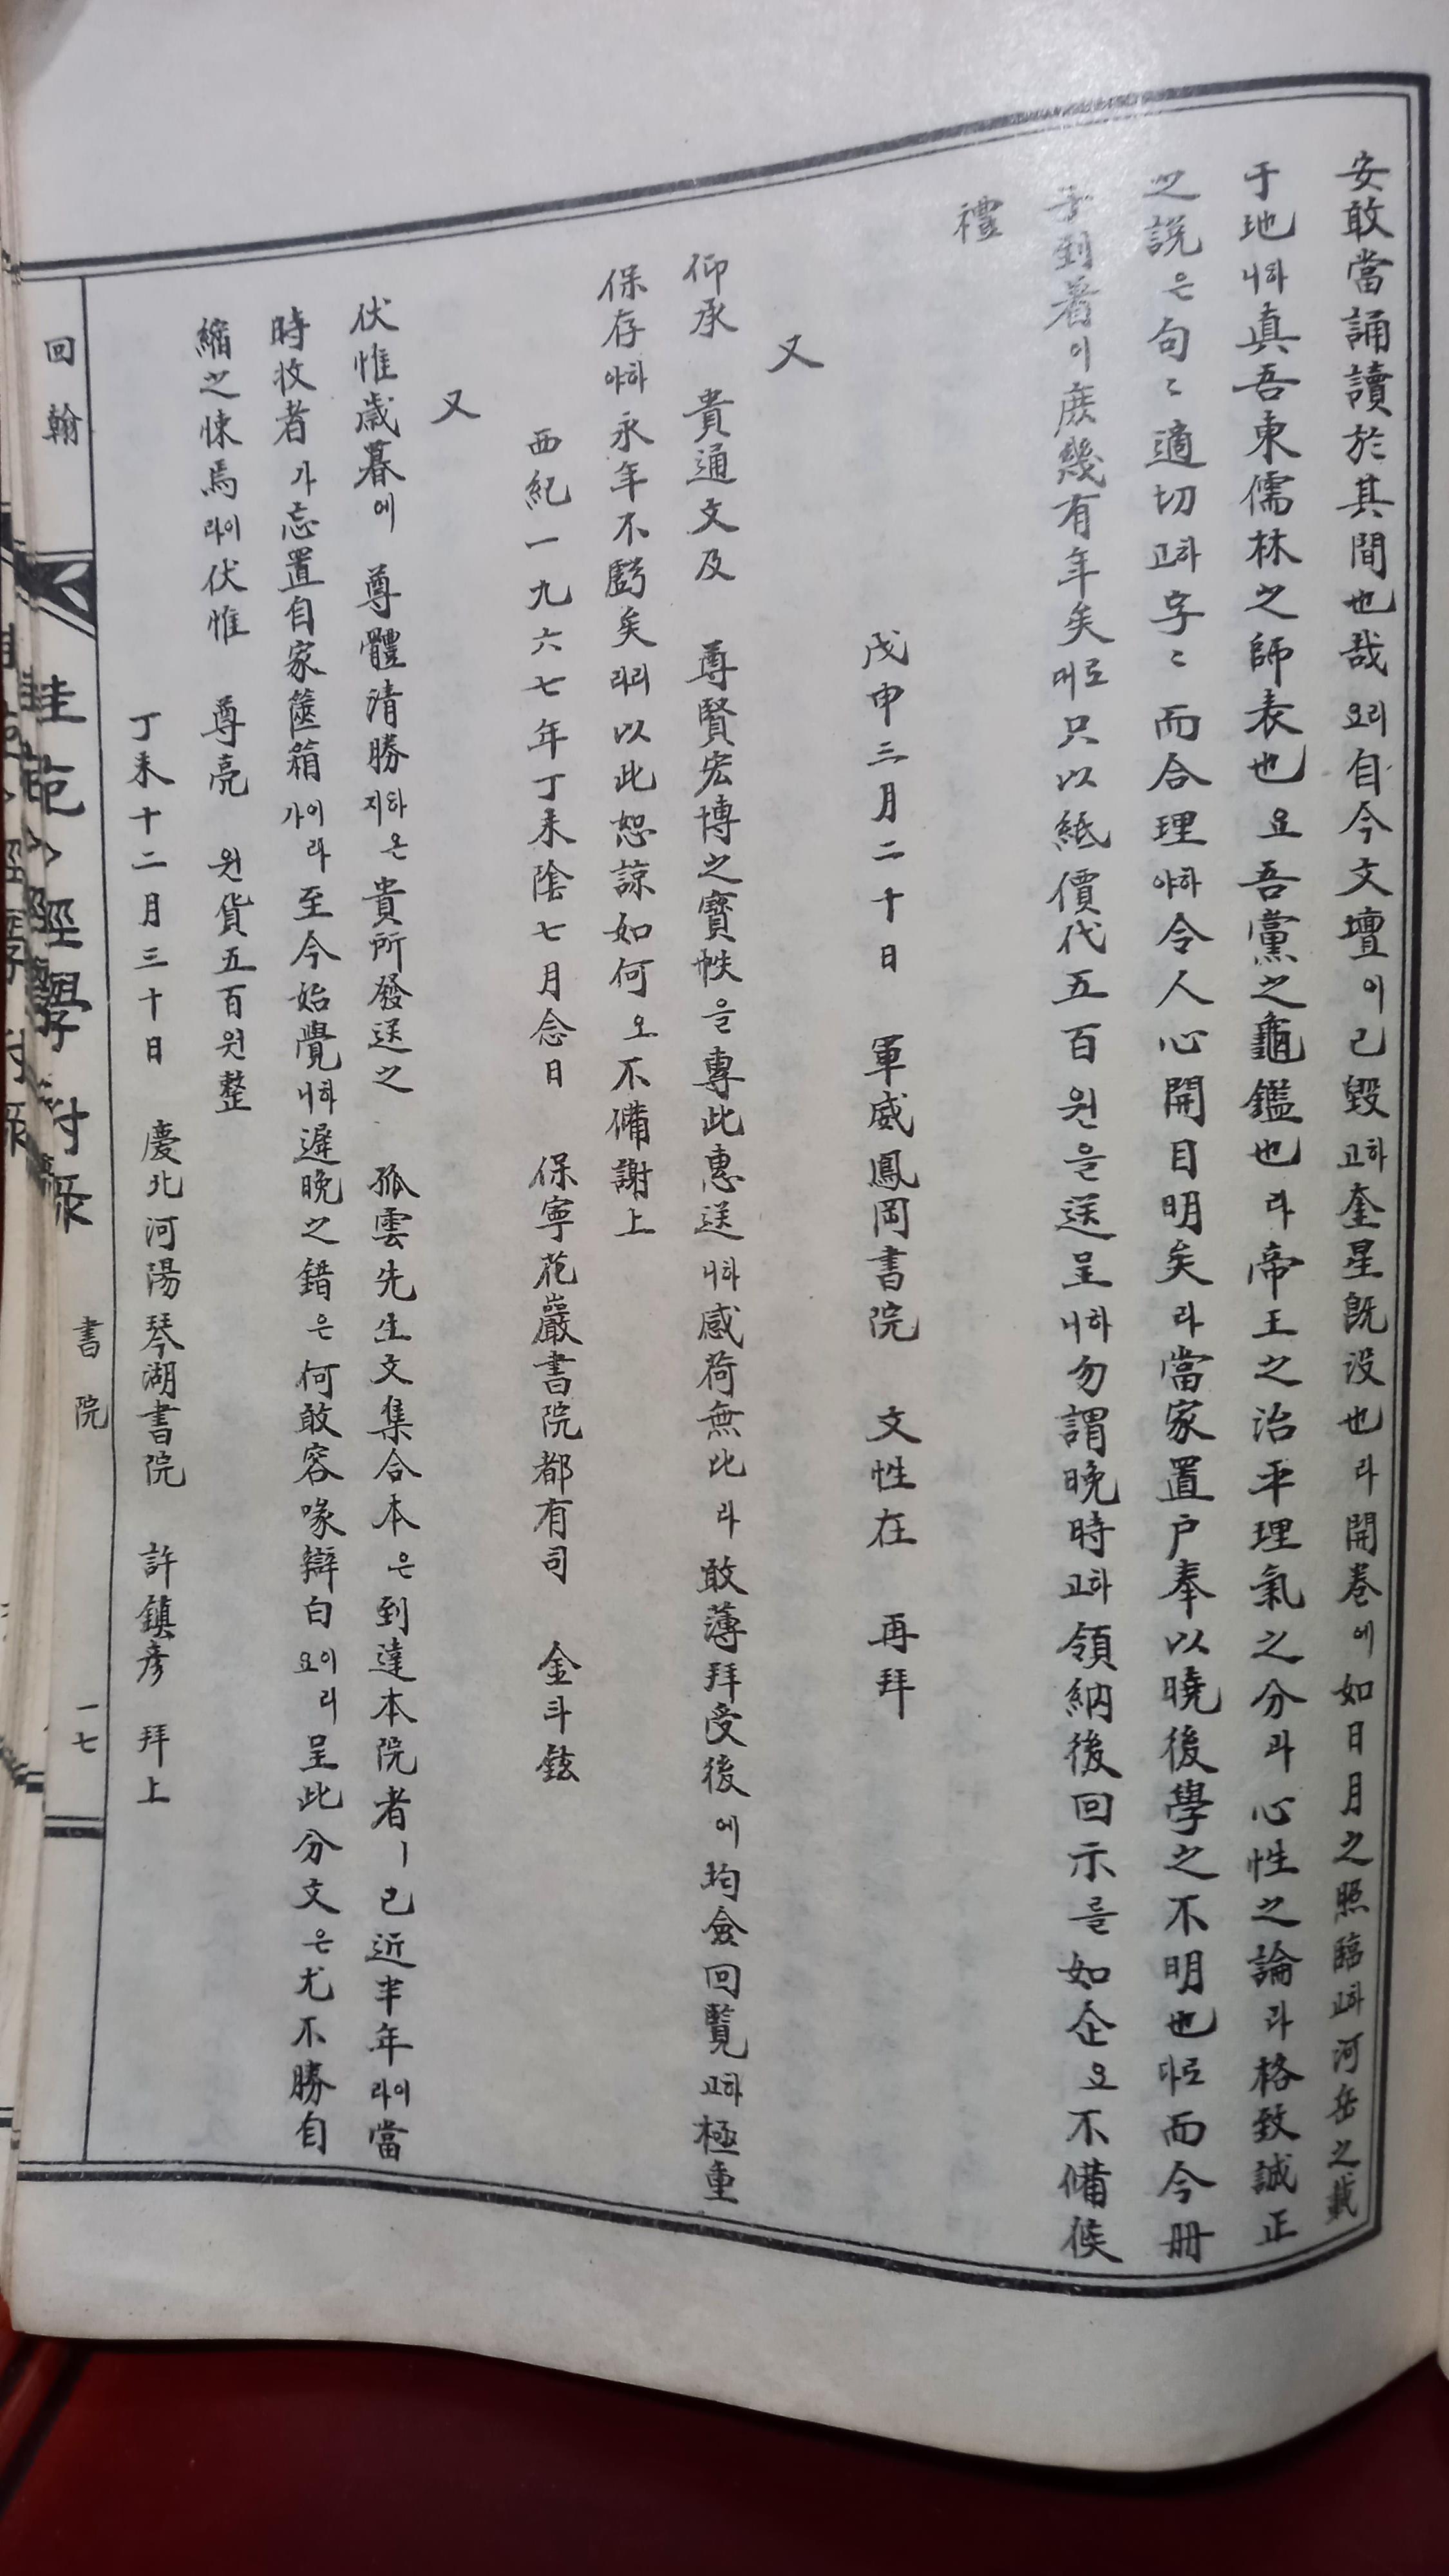 安敢當誦讀於其間也哉리요自今文壇이已毀하고奎星旣沒也라開卷에如日月之照臨하고河岳之載
于地하니眞吾東儒林之師表也요吾黨之龜鑑也라帝王之治平理氣之分과心性之論과格致誠正
之說은句〻適切하고字〻而合理하야令人心開目明矣라當家置戶奉以曉後學之不明也로다而今册
子到着이庶幾有年矣로대只以紙價代五百원을送呈하니勿謂晚時하고領納後回示를如企요不備候
禮
戊申三月二十日 軍威鳳岡書院 文性在 再拜
又
仰承 貴通文及 尊賢宏博之寶帙을專此惠送하니感荷無比라敢薄拜受後에均僉回覽하고極重
保存하야永年不虧矣리라以此恕諒如何오不備謝上
西紀一九六七年丁未陰七月念日 保寧花巖書院都有司 金斗鉉
又
伏惟歲暮에 尊體淸勝하온지貴所發送之 孤雲先生文集合本은到達本院者ㅣ已近半年이라當
時收者가忘置自家篋箱이라가至今始覺하니遲晚之錯은何敢容喙辯白이리요呈此分文은尤不勝自
縮之悚焉이라伏惟 尊亮 원貨五百원整
丁未十二月三十日 慶北河陽琴湖書院 許鎭彦 拜上
回翰
書院
一七